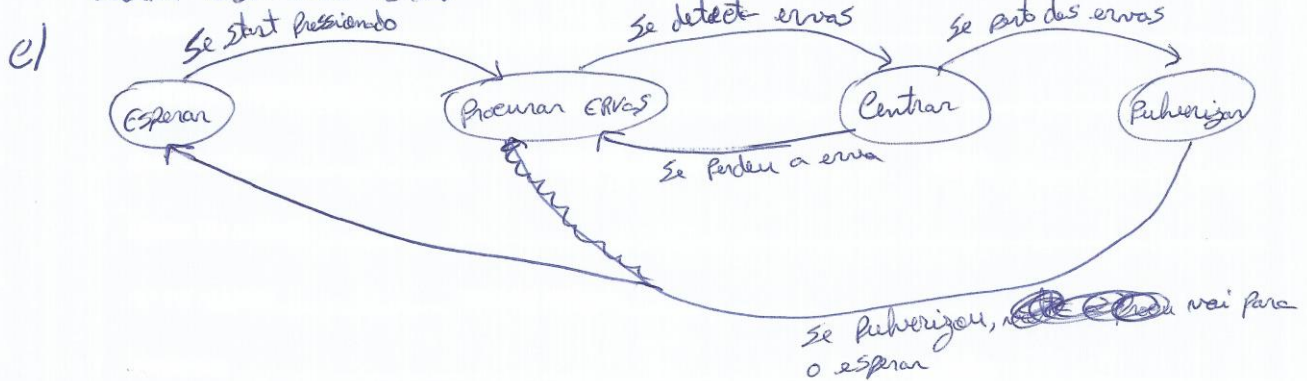 e)
Se start Pressionado
Se detecta ervas
Se perto das ervas
Esperar
Procurar ERVAS
Centrar
Pulverizar
Se Perdeu a erva
Se Pulverizou, vai para
o esperar